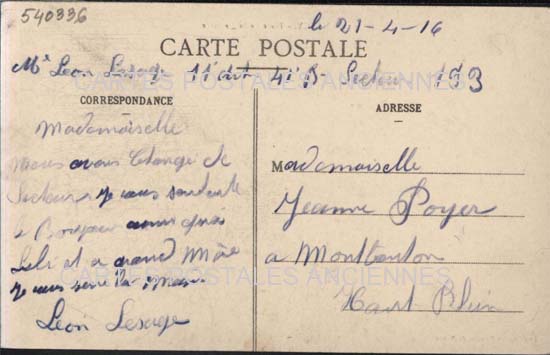 540336
le 21-4-16
CARTE POSTALE
Mr Leon Lesage 11e art 41e B. Secteur 193
CORRESPONDANCE
ADRESSE
Mademoiselle
nous avons changé de
Secteur je vous souhaite
le Bonjour
et a grand Mère
je vous serre la main
Leon Lesage
Mademoiselle
Jeanne Poyer
a
Haut Rhin
CARTES POSTALES ANCIENNES
CARTES POSTALES ANCIENNES